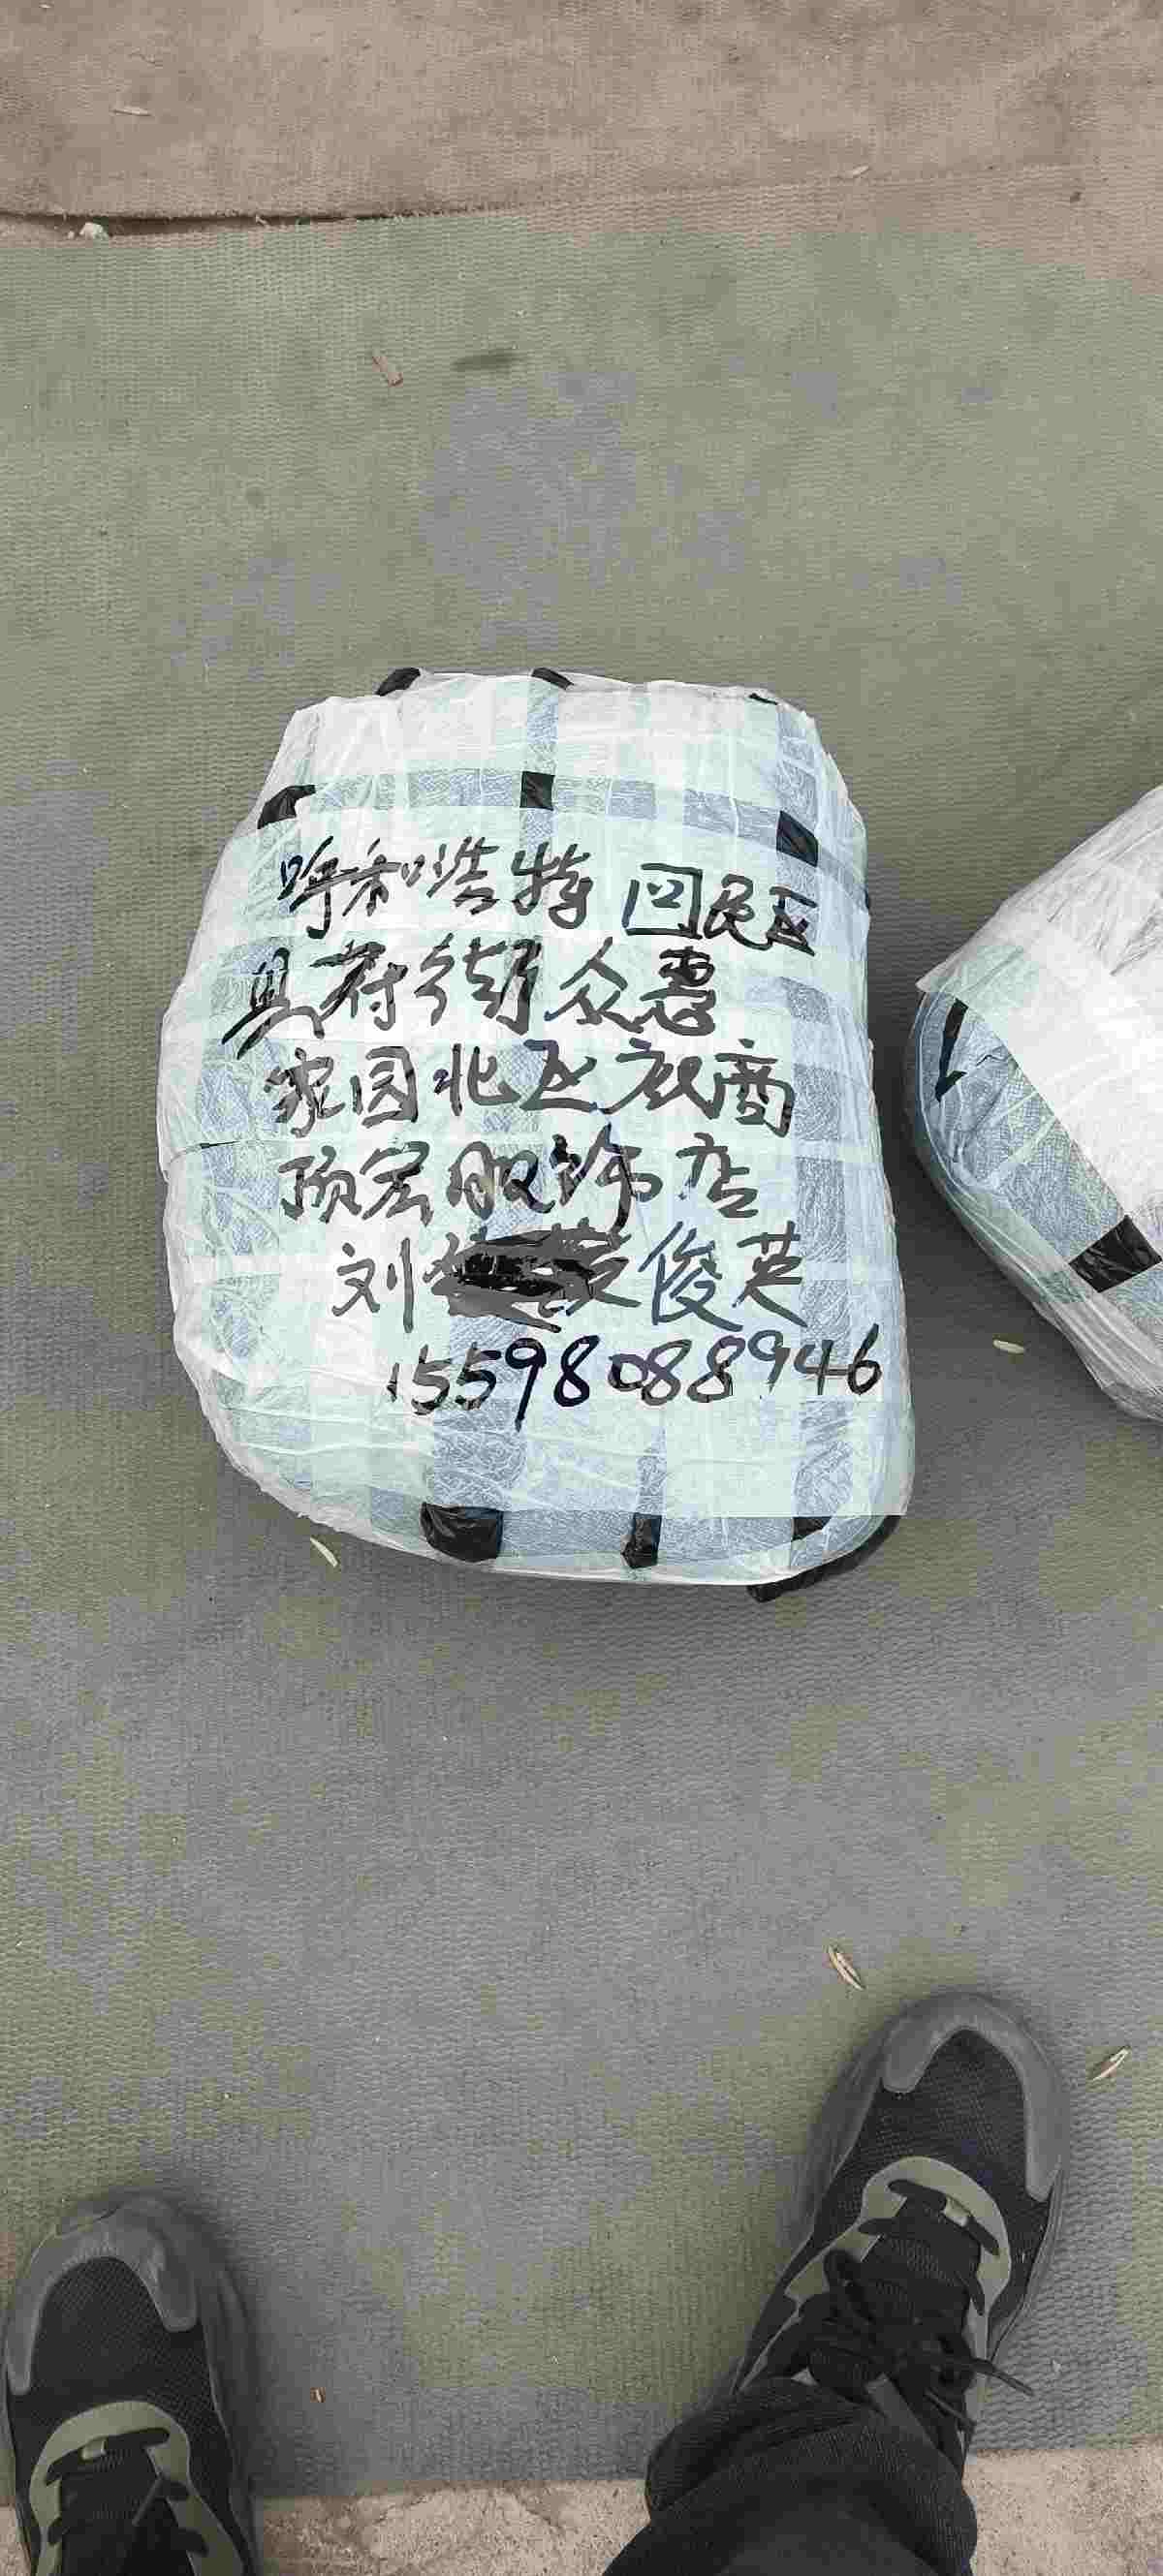 呼和浩特 回民区
奥府街众惠
家园北区底商
颀宏服饰店
刘 俊英
15598088946